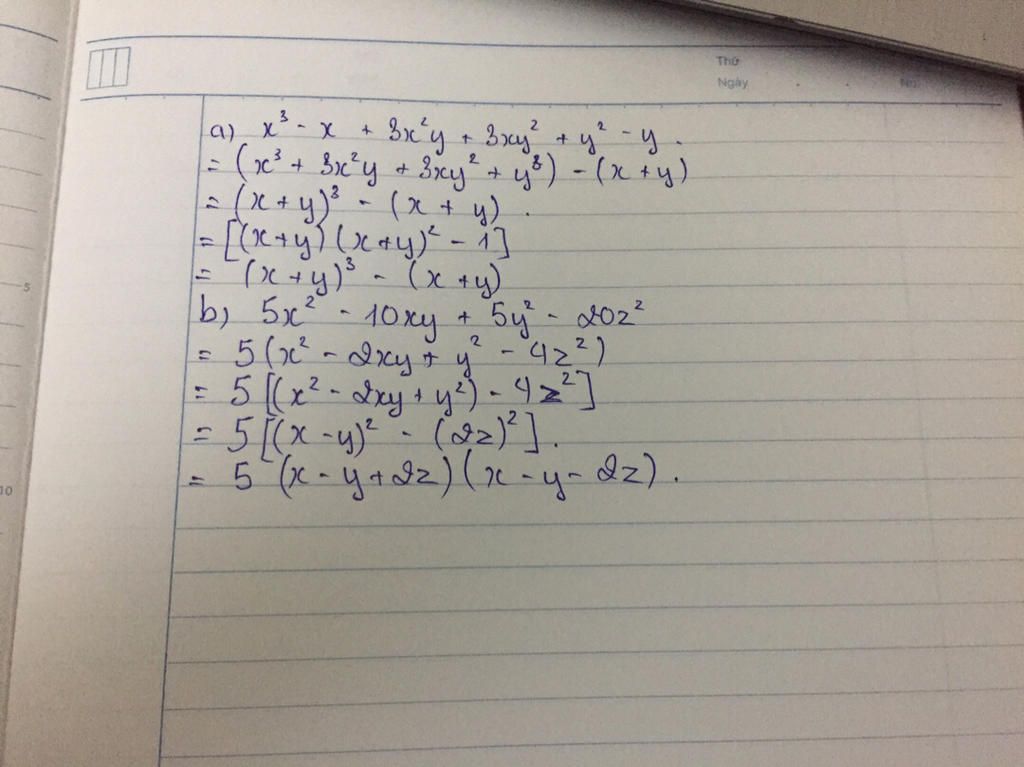 Thứ
Ngày
No.
a) x³ - x + 3x²y + 3xy² + y² - y.
= (x³ + 3x²y + 3xy² + y³) - (x + y)
= (x + y)³ - (x + y).
= [(x+y) (x+y)² - 1]
= (x + y)³ - (x + y)
5
b) 5x² - 10xy + 5y² - 20z²
= 5 (x² - 2xy + y² - 4z²)
= 5 [(x² - 2xy + y²) - 4z²]
= 5 [(x - y)² - (2z)²].
= 5 (x - y + 2z) (x - y - 2z).
10